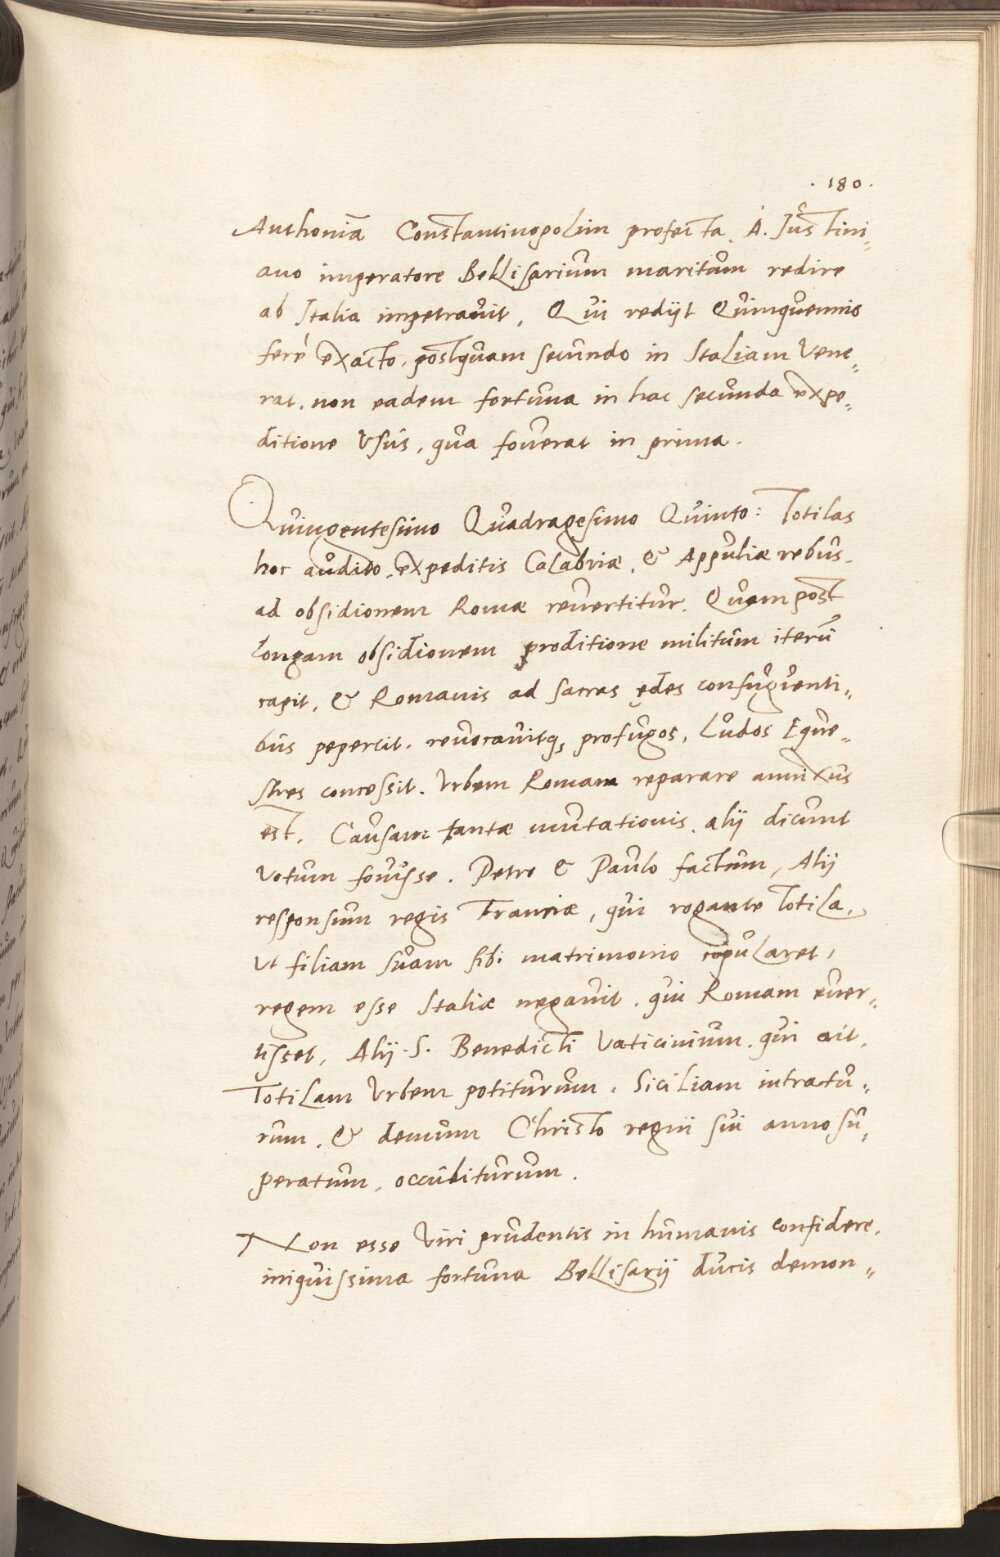 . 180 .
Anthoniā Constantinopolim profecta. A. Justini„
ano imperatore Bellisarium maritum redire
ab Italia impetrauit, Qui redijt Quinquennio
ferè exacto, postquam secundo in Italiam Vene„
rat. non eadem fortuna in hac secunda expe„
ditione Vsus, qua fouerat in prima.
Quingentesimo Quadragesimo Quinto: Totilas
hoc audito, expeditis Calabriæ, & Appuliæ rebus.
ad obsidionem Romæ reuertitur. Quam post
longam obsidionem proditione militum iterū
capit, & Romanis ad sacras ędes confugienti„
bus pepercit. reuocauitq; profugos, Ludos Eque„
stres concessit. Vrbem Romam reparare annixus
est. Causam tantæ mutationis. alij dicunt
Votum fouisse. Petro & Paulo factum, Alij
responsum regis Franciæ, qui rogante Totila,
Vt filiam suam sibi matrimonio copularet,
regem esse Italiæ negauit. qui Romam euer„
tisset, Alij S. Benedicti Vaticinium. qui ait.
Totilam Vrbem potiturum. Siciliam intractu„
rum. & demum Christo regni sui anno su„
peratum, occubiturum.
Non esse Viri prudentis in humanis confidere.
iniquissima fortuna Bellisarij ducis demon„